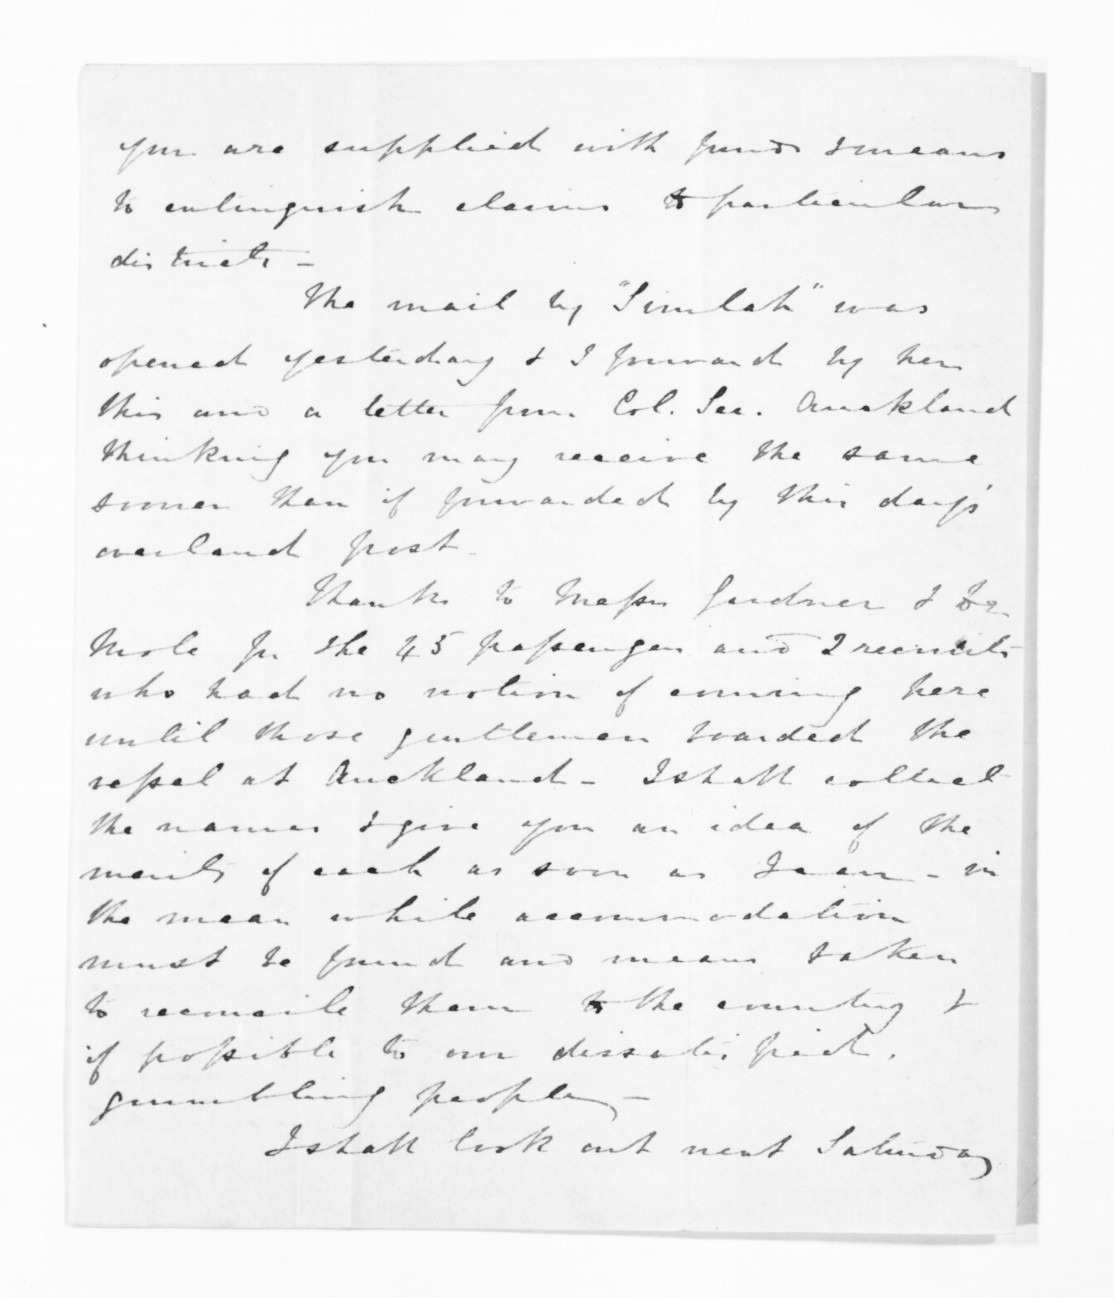 you are supplied with funds & means
to extinguish claims to particular
districts -
The mail by "Simlah" was
opened yesterday & I forward by her
this and a letter from Col. Sec. Auckland
thinking you may receive the same
sooner than if forwarded by this day's
overland post.
Thanks to Messrs Gardner & De
Mole for the 45 passengers and 2 recruits
who had no notion of coming here
until those gentlemen boarded the
vessel at Auckland - I shall collect
the names & give you an idea of the
merits of each as soon as I can - in
the mean while accommodation
must be found and means taken
to reconcile them to the country &
if possible to our dissatisfied,
grumbling people, -
I shall look out next Saturday